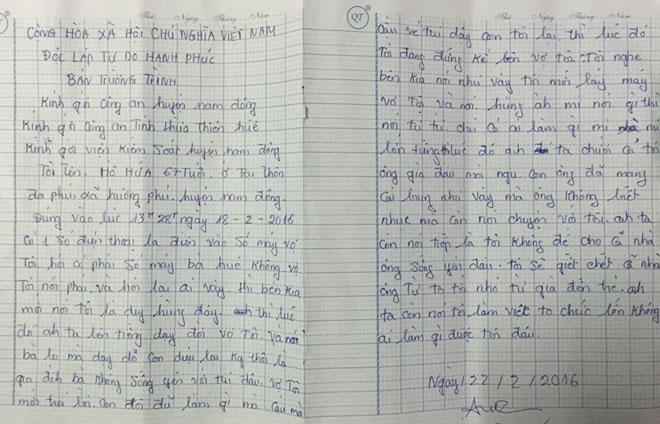 CỘNG HÒA XÃ HÔI CHỦ NGHĨA VIỆT NAM
ĐÔC LẬP TỰ DO HẠNH PHÚC
BẢN TƯỜNG TRÌNH
Kính gởi công an huyện nam đông
Kính gởi công an Tỉnh thừa thiên huế
Kính gởi viên Kiểm Soát huyện nam đông
Tôi tên. HỒ HỨA 67 Tuổi. ở Tại thôn
phú. huyện nam đông.
Đúng vào lúc 13h 28' ngày 18-2-2016
Có 1 Số điện thoại lạ điện vào Số máy vợ
Tôi. hỏi có phải Số máy bà huê không. vợ
Tôi nói phải. và hỏi lại ai vậy. thì bên Kia
mới nói tôi là duy hùng đây. thì lúc
đó anh ta lớn tiếng dạy đời vợ Tôi. và nói
bà lo mà dạy dỗ con dựu lại
gia đình bà không sống yên với tui đâu. vợ Tôi
mới trả lời. con đời làm gì mà cậu mà
cần về tui dảy con tôi lại thì lúc đó
Tôi đang đứng Kề bên vợ tôi. Tôi nghe
bên Kia nói như vậy tôi mới lấy máy
vợ Tôi và nói. hùng àh. mi nói gì thì
nói từ từ. chứ có ai làm gì mi mà mi
lớn tiếng. lúc đó anh ta chưởi cả tôi
ông già đầu mà ngu. con ông đã mang
cái như vậy mà ông Không biết
nhục mà còn nói chuyện với tôi. anh ta
còn nói tiếp là tôi không để cho cả nhà
ông Sống yên đâu. tôi sẽ giết chết cả nhà
ông Từ to tới nhỏ từ già đến trẻ. anh
ta còn nói tôi làm việc to chức lớn không
ai làm gì được tôi đâu.
Ngày / 22 / 2 / 2016